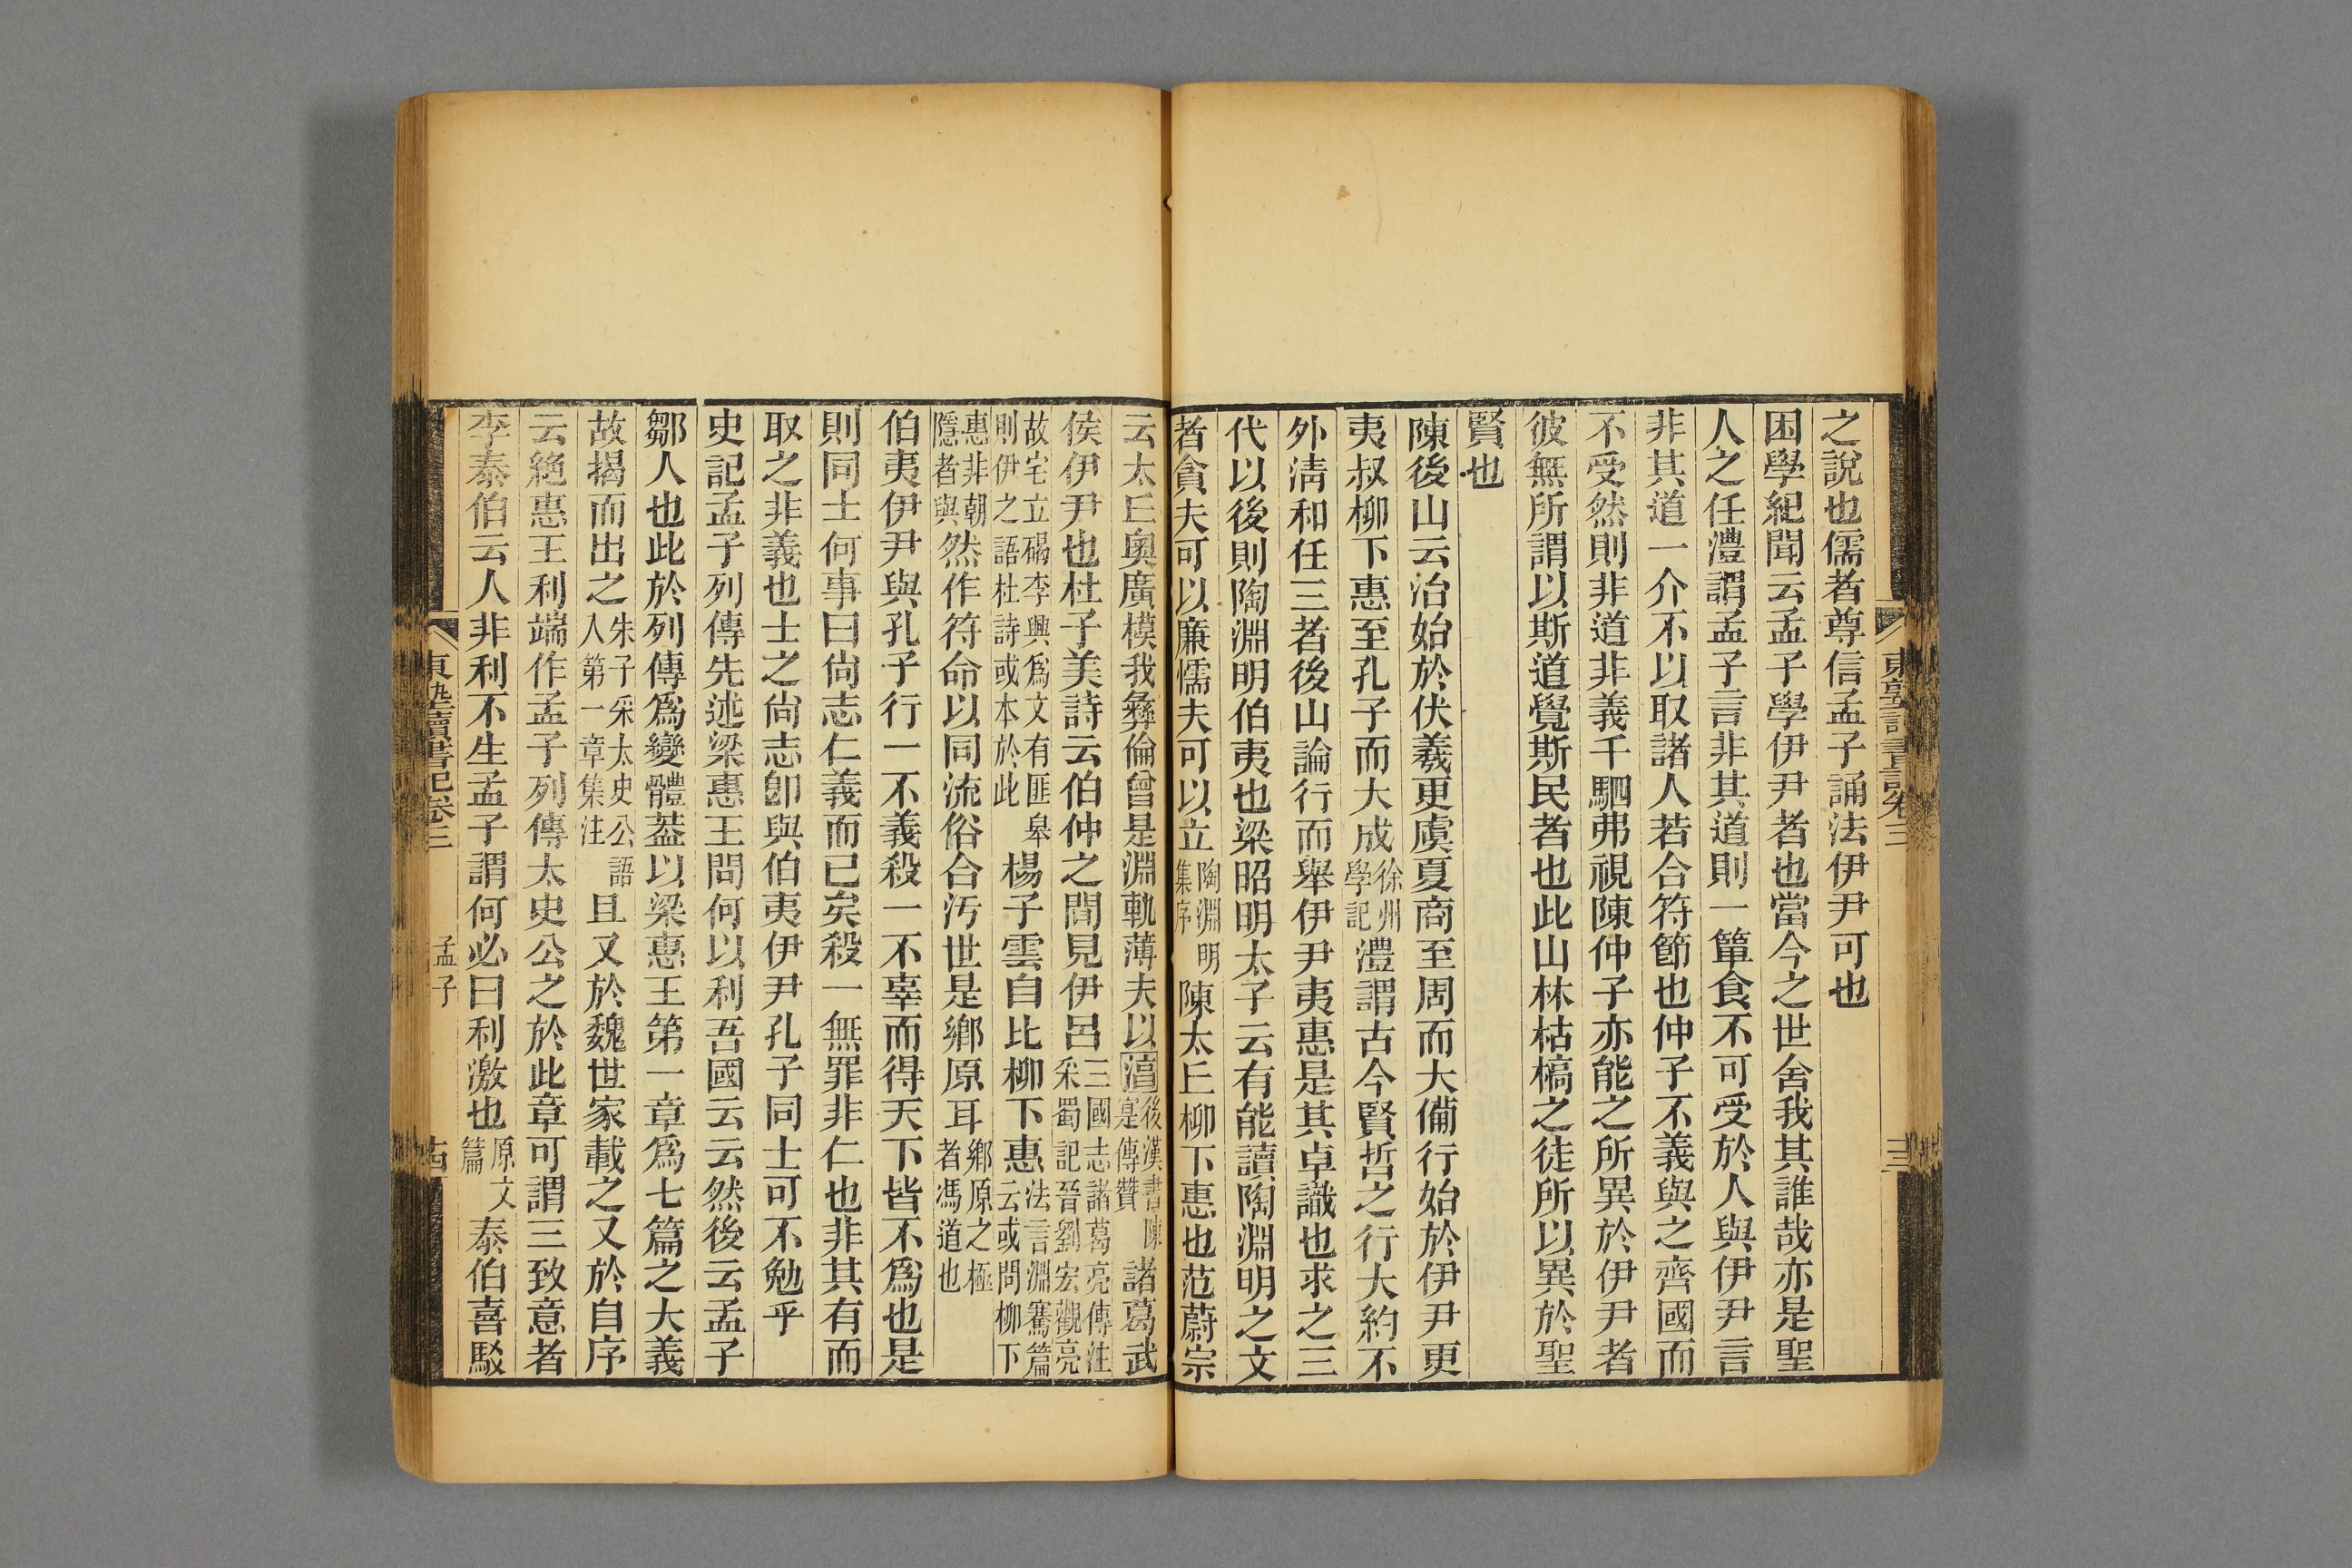 之說也儒者尊信孟子誦法伊尹可也
困學紀聞云孟子學伊尹者也當今之世舍我其誰哉亦是聖
人之任澧謂孟子言非其道則一簞食不可受於人與伊尹言
非其道一介不以取諸人若合符節也仲子不義與之齊國而
不受然則非道非義千駟弗視陳仲子亦能之所異於伊尹者
彼無所謂以斯道覺斯民者也此山林枯槁之徒所以異於聖
賢也
陳後山云治始於伏羲更虞夏商至周而大備行始於伊尹更
夷叔柳下惠至孔子而大成徐州學記澧謂古今賢哲之行大約不
外淸和任三者後山論行而舉伊尹夷惠是其卓識也求之三
代以後則陶淵明伯夷也梁昭明太子云有能讀陶淵明之文
者貪夫可以廉懦夫可以立陶淵明集序陳太丘柳下惠也范蔚宗
云太丘奧廣模我彝倫曾是淵軌薄夫以湻後漢書陳寔傳贊諸葛武
侯伊尹也杜子美詩云伯仲之閒見伊呂三國志諸葛亮傳注采蜀記晉劉宏觀亮
故宅立碣李興爲文有匪皋則伊之語杜詩或本於此楊子雲自比柳下惠法言淵騫篇云或問柳下
惠非朝隱者與然作符命以同流俗合汚世是鄕原耳鄕原之極者馮道也
伯夷伊尹與孔子行一不義殺一不辜而得天下皆不爲也是
則同士何事曰尙志仁義而已矣殺一無罪非仁也非其有而
取之非義也士之尙志卽與伯夷伊尹孔子同士可不勉乎
史記孟子列傳先述梁惠王問何以利吾國云云然後云孟子
鄒人也此於列傳爲變體葢以梁惠王第一章爲七篇之大義
故揭而出之朱子采太史公語入第一章集注且又於魏世家載之又於自序
云絕惠王利端作孟子列傳太史公之於此章可謂三致意者
李泰伯云人非利不生孟子謂何必曰利激也原文篇泰伯喜駁
東塾讀書記卷三
孟子
古